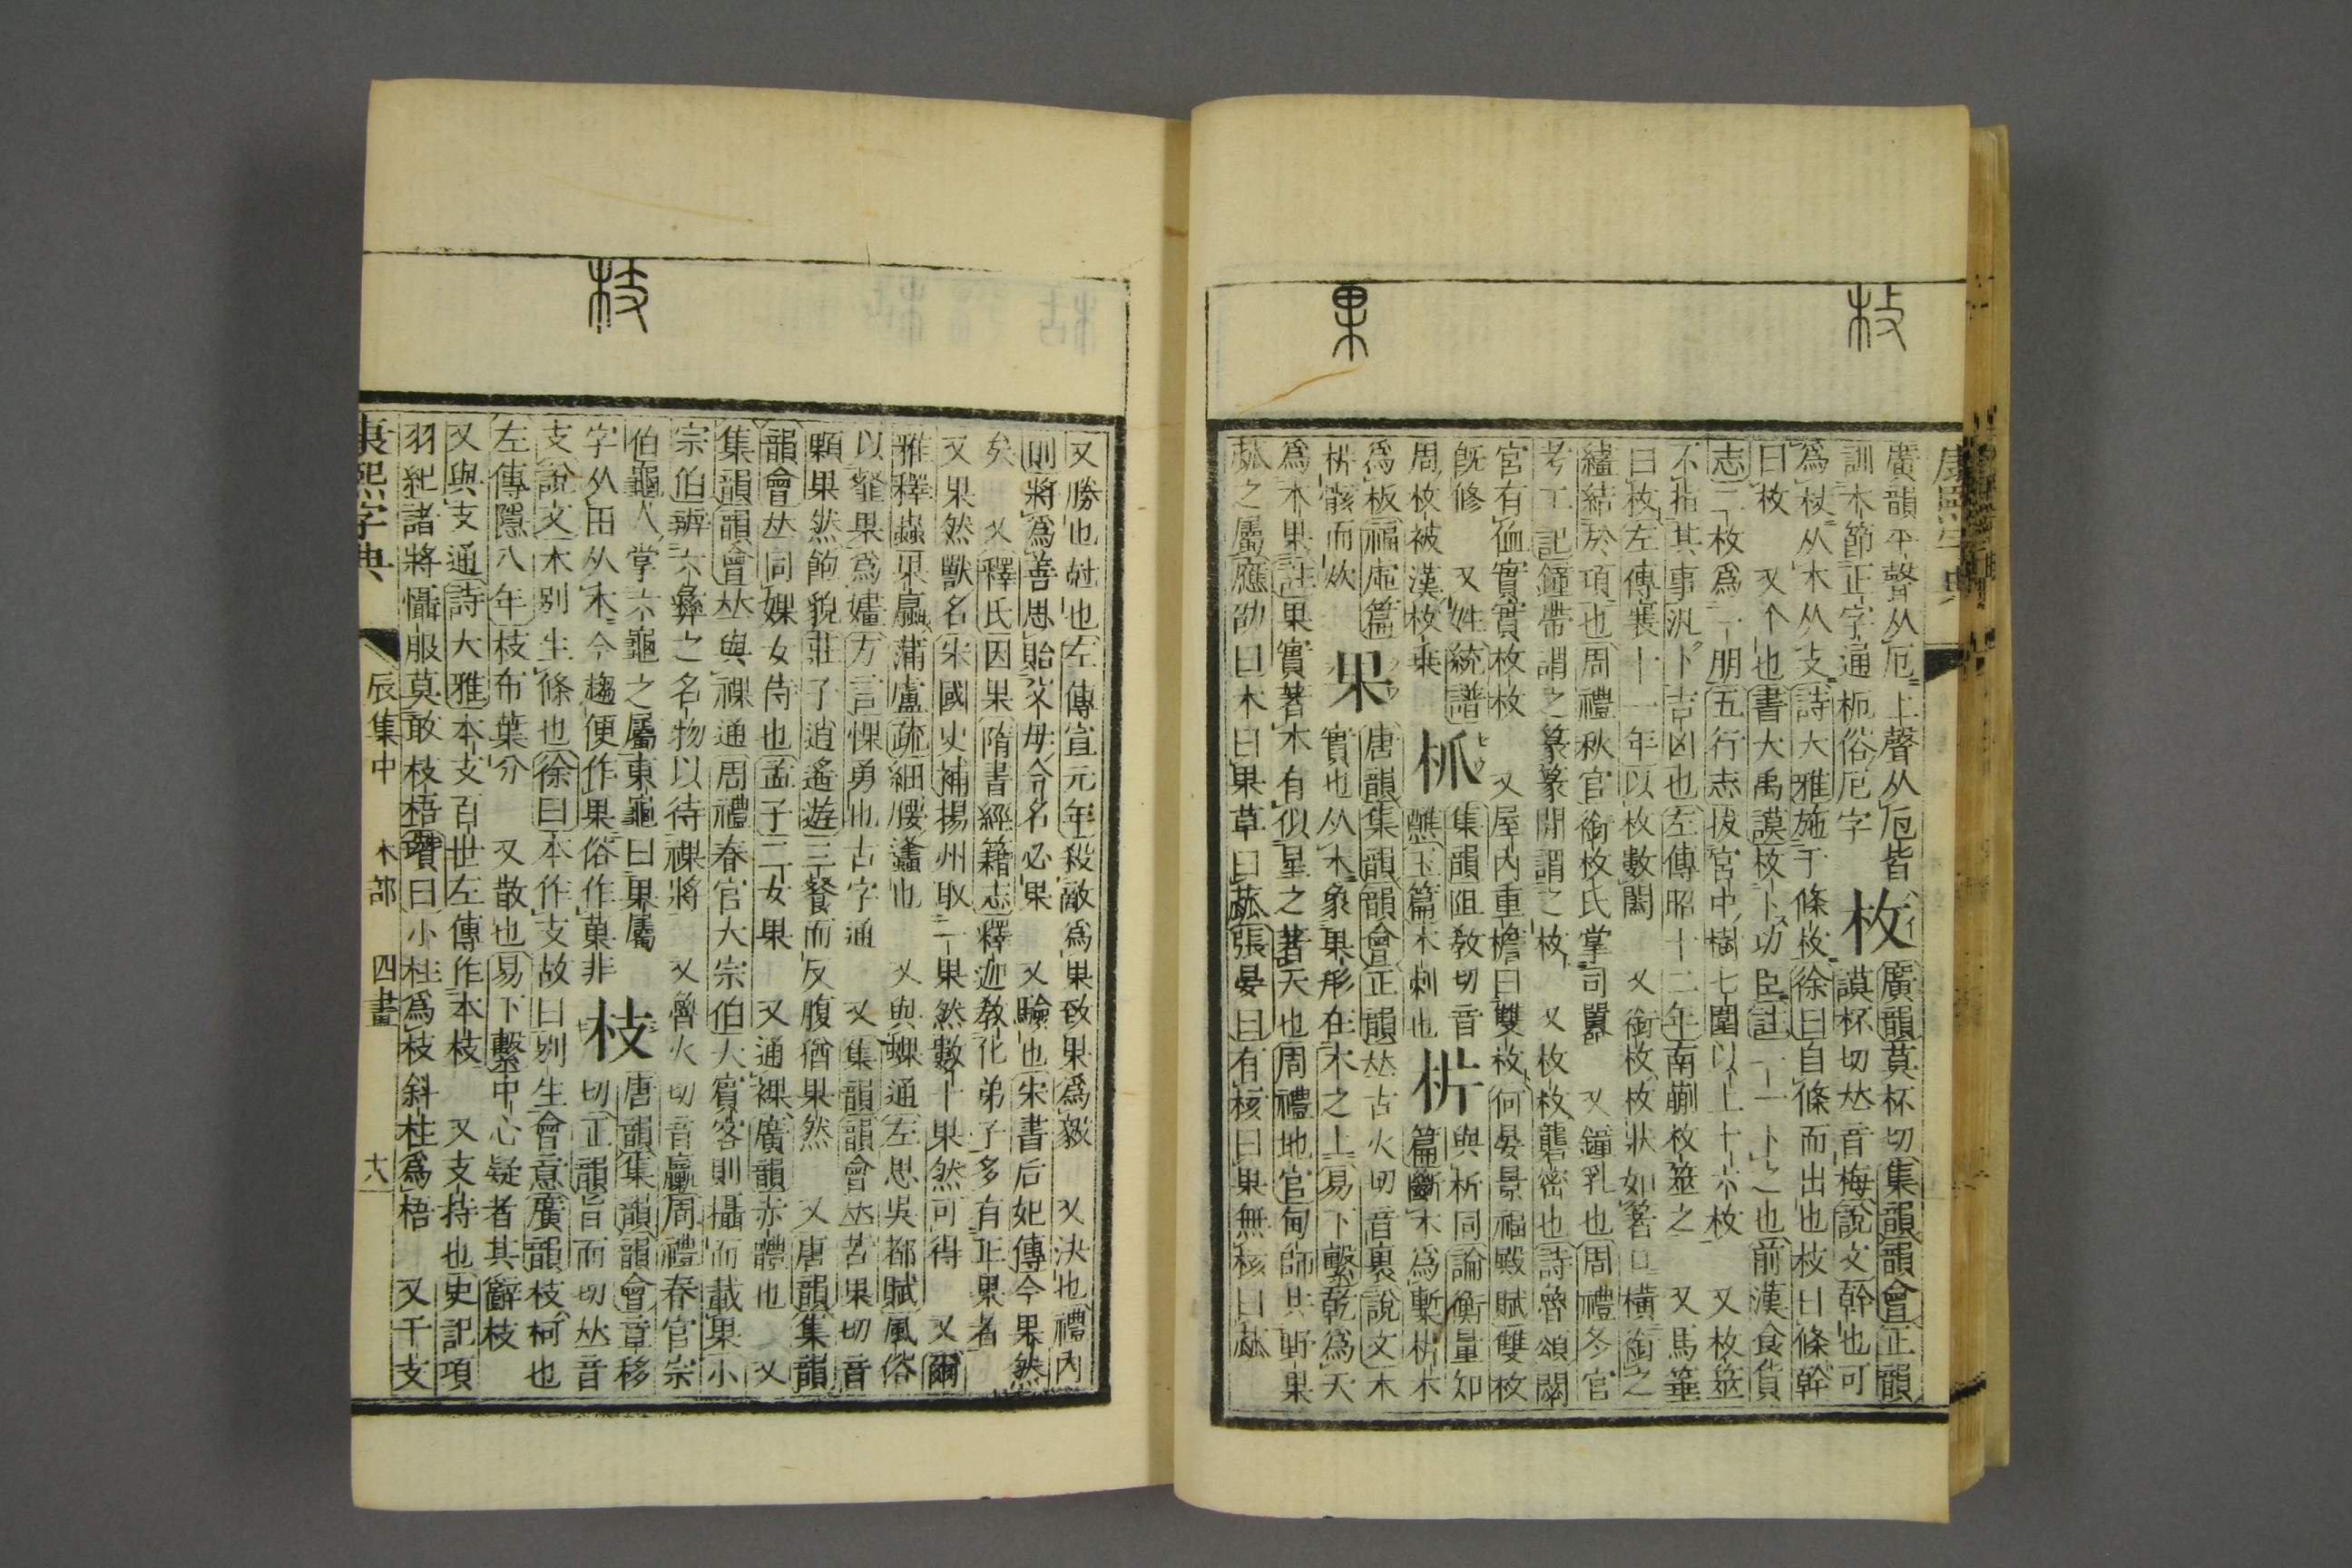 枚
果
康熙字典
廣韻平聲从厄上聲从卮皆 枚 廣韻莫杯切集韻韻會正韻
訓木節正字通枙俗卮字 謨杯切𠀤音梅說文幹也可
爲杖从木从攴詩大雅施于條枚徐曰自條而出也枚曰條幹
曰枚 又个也書大禹謨枚卜功臣註一一卜之也前漢食貨
志二枚爲一朋五行志拔宮中樹七圍以上十六枚 又枚筮
不指其事汎卜吉凶也左傳昭十二年南蒯枚筮之 又馬箠
曰枚左傳襄十一年以枚數闔 又銜枚枚狀如箸口橫銜之
繣結於項也周禮秋官銜枚氏掌司嚻 又鐘乳也周禮冬官
考工記鐘帶謂之篆篆閒謂之枚 又枚枚礱密也詩魯頌閟
宮有侐實實枚枚 又屋內重檐曰雙枚何晏景福殿賦雙枚
旣修 又姓統譜 集韻阻敎切音 㭊 與析同論衡量知
周枚被漢枚乗 醮玉篇木刺也 篇斷木爲槧㭊木
爲板福虛篇 果 唐韻集韻韻會正韻𠀤古火切音裹說文木
㭊骸而炊 實也从木象果形在木之上易下繫乾爲天
爲木果註果實著木有似星之著天也周禮地官甸師共野果
蓏之屬應劭曰木曰果草曰蓏張晏曰有核曰果無核曰蓏
枝
又勝也尅也左傳宣元年殺敵爲果致果爲毅 又決也禮內
則將爲善思貽父母令名必果 又驗也宋書后妃傳今果然
矣 又釋氏因果隋書經籍志釋迦敎化弟子多有正果者
又果然獸名宋國史補揚州取一果然數十果然可得 又爾
雅釋蟲果蠃蒲盧疏細腰蠭也 又與蜾通左思吳都賦風俗
以韰果爲嫿方言惈勇也古字通 又集韻韻會𠀤苦果切音
顆果然飽貌莊子逍遙遊三餐而反腹猶果然 又唐韻集韻
韻會𠀤同婐女侍也孟子二女果 又通裸廣韻赤體也 又
集韻韻會𠀤與祼通周禮春官大宗伯大賓客則攝而載果小
宗伯辨六彝之名物以待祼將 又魯火切音臝周禮春官宗
伯龜人掌六龜之屬東龜曰果屬
字从田从木今趨便作果俗作菓非 枝 唐韻集韻韻會章移
切正韻旨而切𠀤音
支說文木別生條也徐曰本作支故曰別生會意廣韻枝柯也
左傳隱八年枝布葉分 又散也易下繫中心疑者其辭枝
又與支通詩大雅本支百世左傳作本枝 又支持也史記項
羽紀諸將慴服莫敢枝梧瓚曰小柱爲枝斜柱爲梧 又干支
康熙字典 辰集中 木部 四畫 六